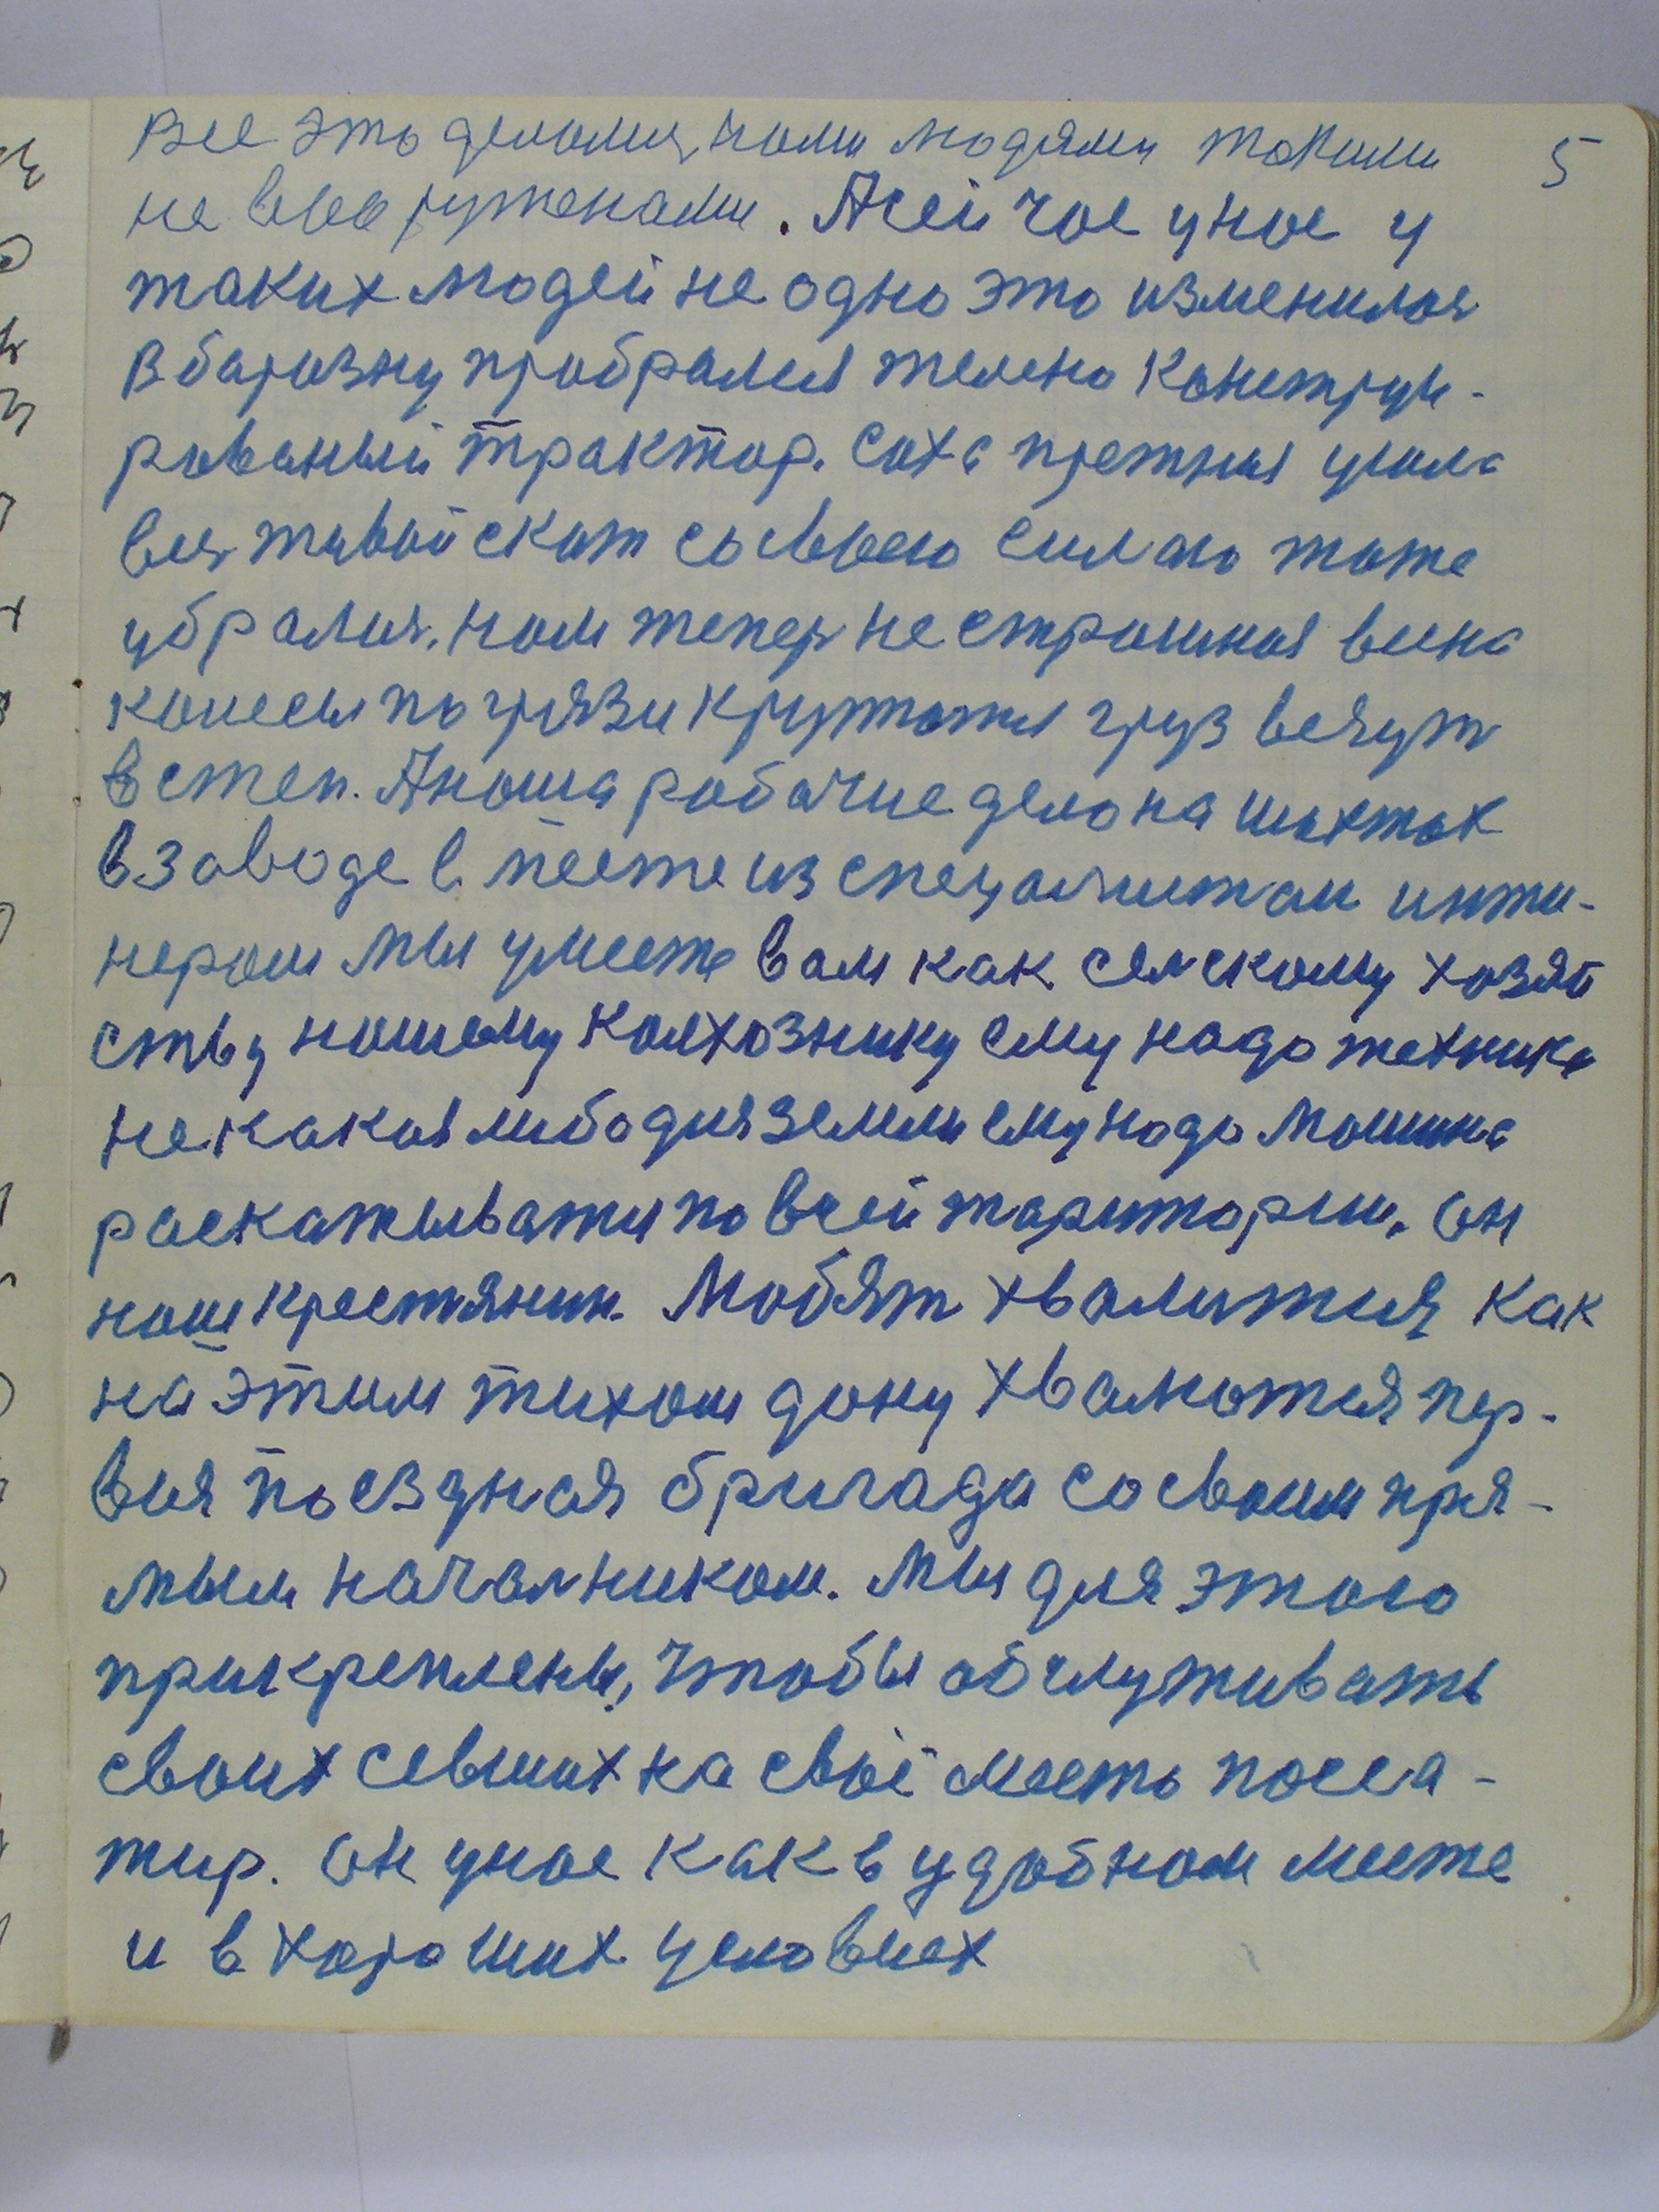 все это делолися, нами людями такими 5
не вооруженами. Асей час унас у
таких людей не одно это изменилося
в барозну пробрался желено констру и-
рованый трактор. соха прежная ушла
вся живой скот со своею силаю тоже
убралися. нам тепер не страшная вена
колесы по грязи кружатся груз везут
в степ. Анаша рабочие дело на шахтах
в заводе в месте из специалистам инжи-
нером мы умеете вам как селскому хозяй
ству нашему колхознику ему надо техника
не какая либо для земли ему надо машина
раскатыватя по всей тариторыи. он
наш крестянин. Любят хвалится как
на этим тихом дону хвалются пер-
вая поездная бригада со своим пря-
мым началником. Мы для этого
прикреплены, чтобы обслуживать
своих севших на своё место пасса-
жир. он унас как в удобном месте
и в хороших условиях